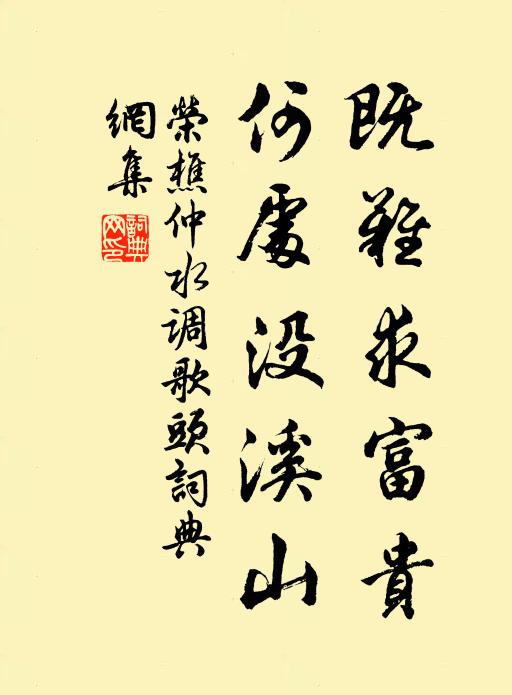 既難求富貴
何處没溪山
榮樵仲水调歌頭詞典
網集
詞典
网印